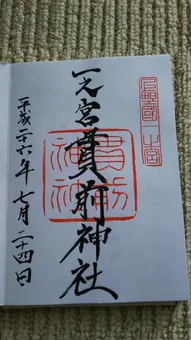 一之宮貫前神社
貫前
神社
平成二十六年七月二十四日